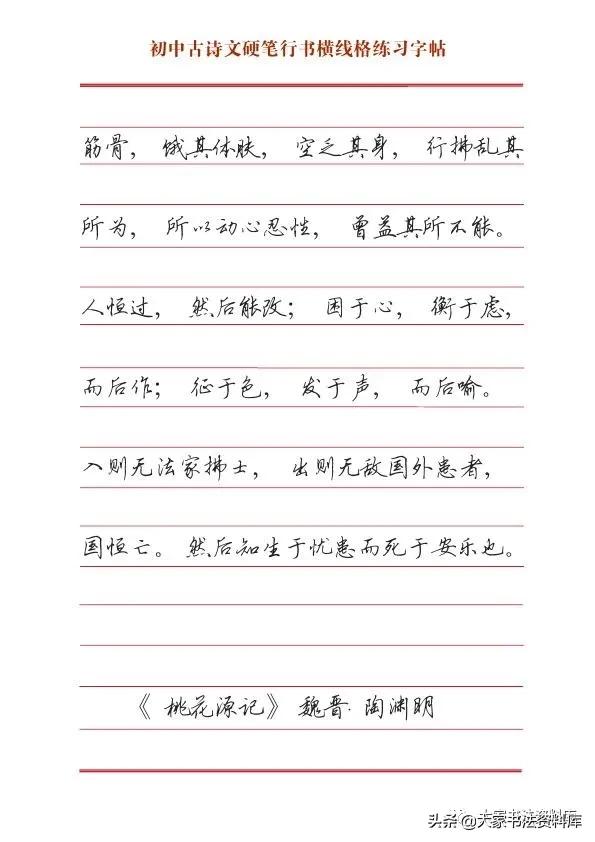 初中古诗文硬笔行书横线格练习字帖
筋骨， 饿其体肤， 空乏其身， 行拂乱其
所为， 所以动心忍性， 曾益其所不能。
人恒过， 然后能改； 困于心， 衡于虑，
而后作； 征于色， 发于声， 而后喻。
入则无法家拂士， 出则无敌国外患者，
国恒亡。 然后知生于忧患而死于安乐也。
《 桃花源记》 魏晋· 陶渊明
大家书法资料库
头条@大家书法资料库